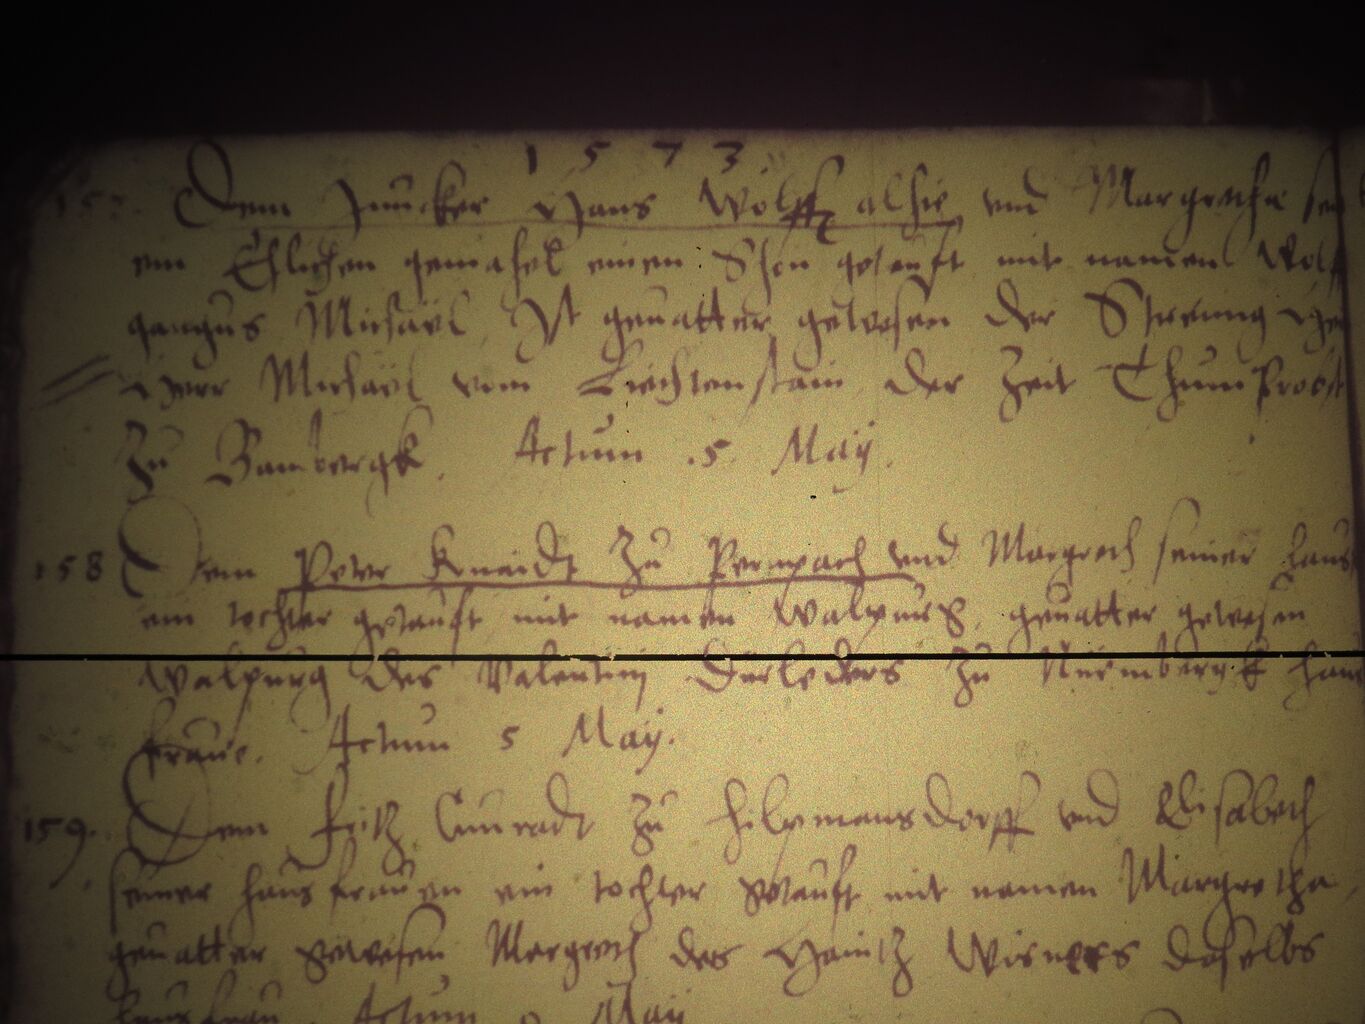 1 5 7 3
157. Dem Juncker Hans Wolff alhie vnd Margretha sei
em Ehlichen gemahel einen Shon getaufft mit namen Wolff
gangus Michaël Ist geuatter gewesen der Streung
Herr Michaël vom Liechtenstain der Zeit Thumprobst
Zu Bambergk. Actum .5. Maÿ.
158 Dem Peter Knaidt Zu Pernpach vnd Margreth seiner haus
ein tochter getaufft mit namen Walpurg, geuatter gewesen
Walpurg des Valentinj Derleders Zu Nürmbergk haus
fraue. Actum 5 Maÿ.
159. Dem Fritz Cunradt Zu Hilpmansdorff vnd Elisabeth
seiner hausfrauen ein tochter getaufft mit namen Margretha,
geuatter gewesen Margreth des Haintz Wisners doselbs
hausfrau. Actum Maÿ